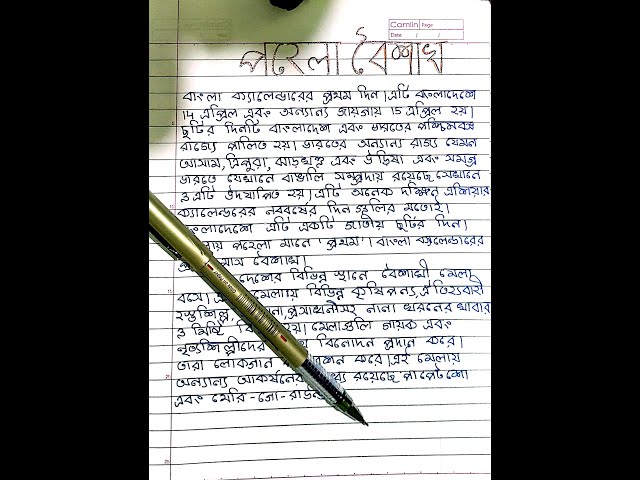 Camlin Page
Date / /
পহেলা বৈশাখ
বাংলা ক্যালেন্ডারের প্রথম দিন। এটি বাংলাদেশে
14 এপ্রিল এবং অন্যান্য জায়গায় 15 এপ্রিল হয়।
ছুটির দিনটি বাংলাদেশ এবং ভারতের পশ্চিমবঙ্গ
রাজ্যে পালিত হয়। ভারতের অন্যান্য রাজ্য যেমন
আসাম, ত্রিপুরা, ঝাড়খন্ড এবং উড়িষা এবং সমগ্র
ভারতে যেখানে বাঙালি সম্প্রদায় রয়েছে সেখানে
ও এটি উদযাপিত হয়। এটি অনেক দক্ষিণ এশিয়ার
ক্যালেন্ডারের নববর্ষের দিন গুলির মতোই।
বাংলাদেশে এটি একটি জাতীয় ছুটির দিন।
পহেলা মানে 'প্রথম'। বাংলা ক্যালেন্ডারের
মাস বৈশাখ।
দেশের বিভিন্ন স্থানে বৈশাখী মেলা
বসে। মেলায় বিভিন্ন কৃষিপন্য, ঐতিহ্যবাহী
হস্তশিল্প, প্রসাধনীসহ নানা ধরনের খাবার
ও মিষ্টি হয়। মেলাগুলি গায়ক এবং
নৃত্যশিল্পীদের বিনোদন প্রদান করে।
তারা লোকগান করে। এই মেলায়
অন্যান্য আকর্ষনের মধ্যে রয়েছে পাপেটশো
এবং মেরি-গো-রাউন্ড